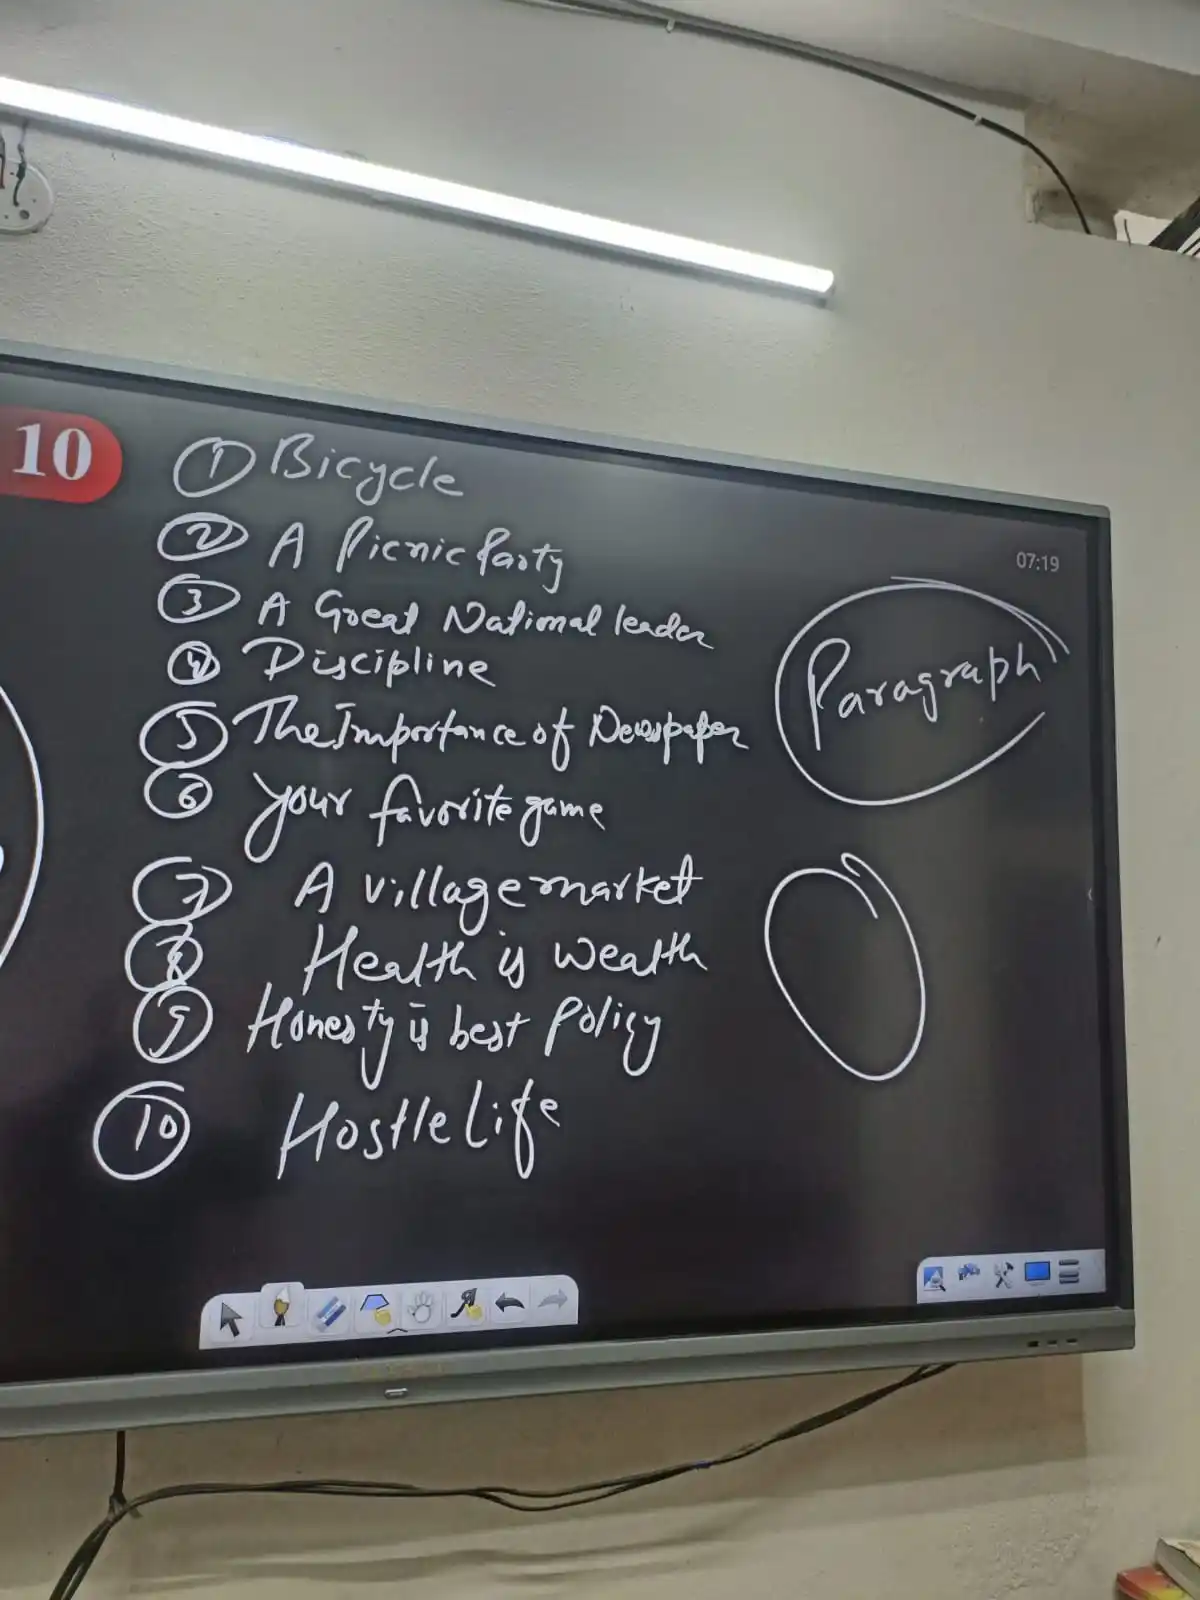 10
① Bicycle
② A Picnic Party
③ A Great National leader
④ Discipline
⑤ The Importance of Newspaper
⑥ your favorite game
⑦ A village market
⑧ Health is wealth
⑨ Honesty is best Policy
⑩ Hostle Life
07:19
Paragraph